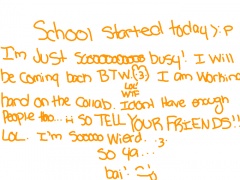 School started today >:P
I'm Just Soooooooooo busy! I will
be coming bacn BTW. (:3) I am Working
LOL WTF
hard on the Collab. I dont Have enough
People too... ;-; SO TELL YOUR FRIENDS!!
LOL. I'm Sooooo Wierd. .:3:.
So Ya...
bai!